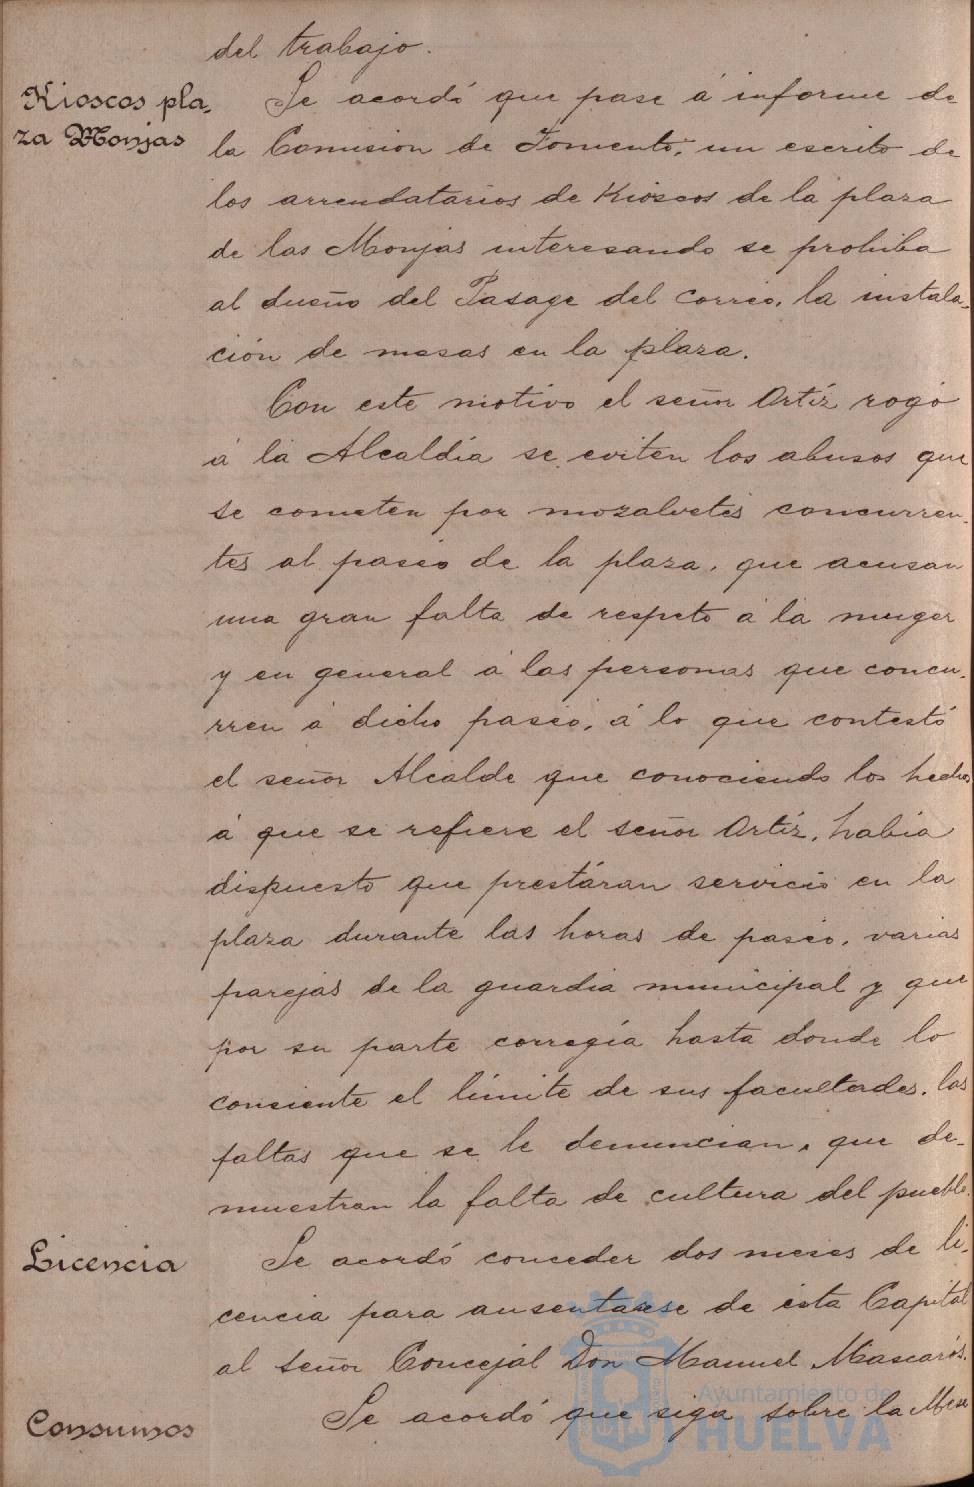 del trabajo.
Kioscos pla-
za Monjas
Se acordó que pase á informe de
la Comision de Fomento, un escrito de
los arrendatarios de Kioscos de la plaza
de las Monjas interesando se prohiba
al dueño del Pasage del Correo, la instala-
ción de mesas en la plaza.
Con este motivo el señor Ortíz rogó
á la Alcaldía se eviten los abusos que
se cometen por mozalvetes concurren-
tes al paseo de la plaza, que acusan
una gran falta de respeto á la muger
y en general á las personas que concu-
rren á dicho paseo, á lo que contestó
el señor Alcalde que conociendo los hechos
á que se refiere el señor Ortíz, había
dispuesto que prestáran servicio en la
plaza durante las horas de paseo, varias
parejas de la guardia municipal y que
por su parte corregía hasta donde lo
consiente el límite de sus facultades, las
faltas que se le denuncian, que de-
muestran la falta de cultura del pueblo.
Licencia
Se acordó conceder dos meses de li-
cencia para ausentarse de ésta Capital
al señor Concejal Don Manuel Mascarós.
Consumos
Se acordó que siga sobre la Mesa
Ayuntamiento de
HUELVA